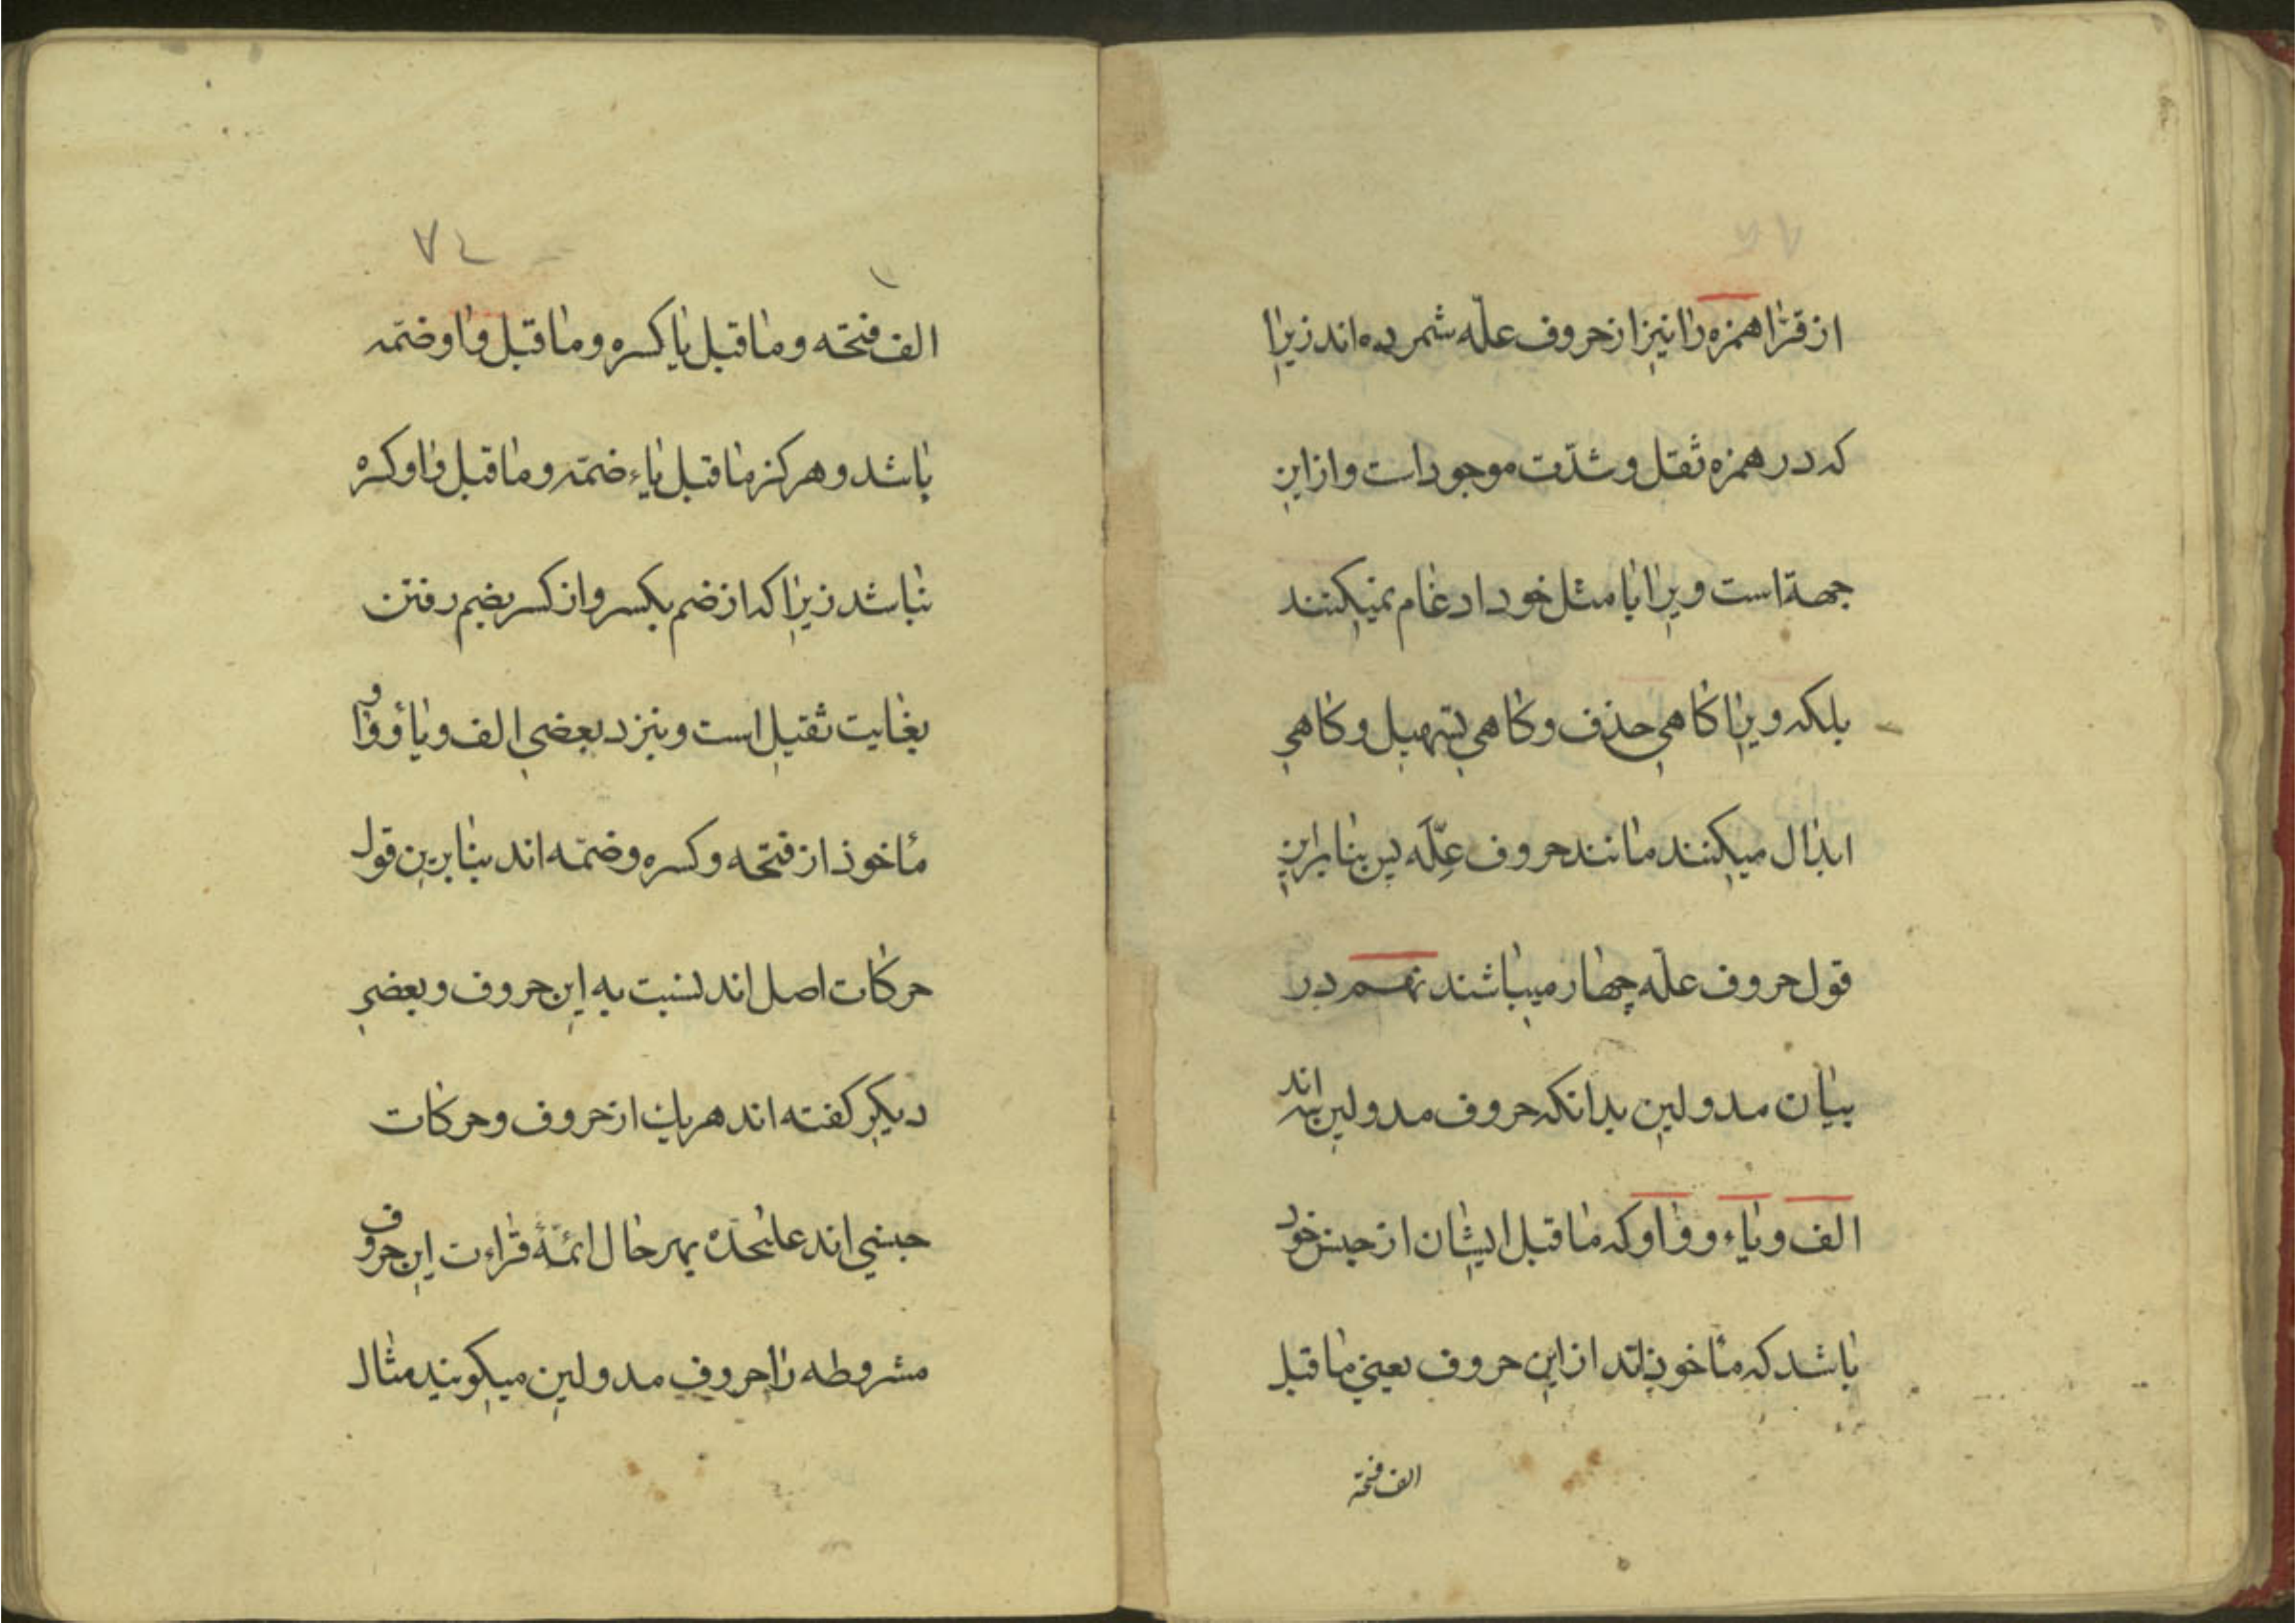 از قرّا همزه را نیز از حروف علّه شمرده اند زیرا
که در همزه ثقل و شدّت موجود است و از این
جهة است ویرا با مثل خود ادغام نمیکنند
بلکه ویرا کاهی حذف و کاهی تسهیل و کاهی
ابدال میکنند مانند حروف عِلّه پس بنابراین
قول حروف علّه چهار میباشند نهم در
بیان مد و لین بدانکه حروف مد و لین سه اند
الف و یاء و واو که ما قبل ایشان از جنس خود
باشد که مأخوذ اند از این حروف یعنی ما قبل
الف فتحة
الف فتحه و ما قبل یا کسره و ما قبل واو ضمّه
باشد و هرکز ما قبل یاء ضمّه و ما قبل واو کسره
نباشد زیرا که از ضم بکسر و از کسر بضم رفتن
بغایت ثقیل است و بنزد بعضی الف و یاؤ واو
مأخوذ از فتحه و کسره و ضمّه اند بنابرین قول
حرکات اصل اند نسبت به این حروف و بعضی
دیکر کفته اند هر یک از حروف و حرکات
جنسی اند علیحده بهر حال ائمّۀ قراءت این حروف
مشروطه را حروف مد و لین میکویند مثال